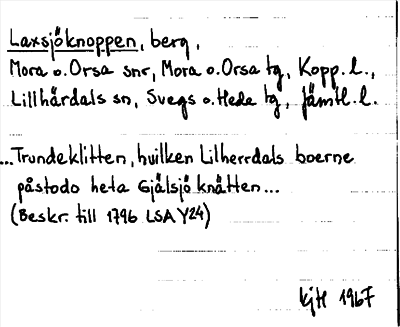 Laxsjöknoppen, berg,
Mora o. Orsa snr, Mora o. Orsa tg, Kopp. l.,
Lillhärdals sn, Svegs o. Hede tg, Jämtl. l.
...Trundeklitten, huilken Lilherrdals boerne
påstodo heta Gjälsjö knätten...
(Beskr. till 1796 LSA Y24)
kjH 1967